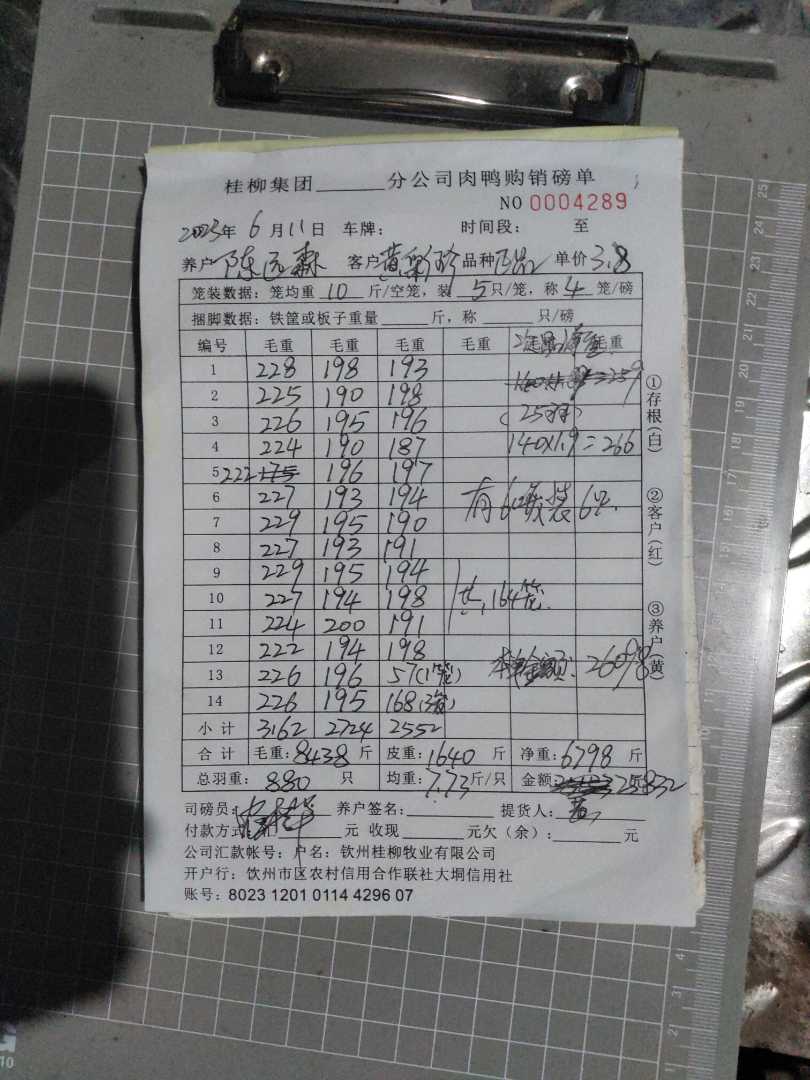 桂柳集团______分公司肉鸭购销磅单
NO 0004289
2023年 6月11日 车牌: 时间段: 至
养户 陈远森 客户 黄彩珍 品种 正品 单价 3.8
笼装数据:笼均重 10 斤/空笼,装 5 只/笼,称 4 笼/磅
捆脚数据:铁筐或板子重量______斤,称______只/磅
编号 毛重 毛重 毛重 毛重 毛重
1 228 198 193
2 225 190 198 259
3 226 195 196 (25
4 224 190 187 140×1.9=266
5 222 175 196 197
6 227 193 194 有6 装6只
7 229 195 190
8 227 193 191
9 229 195 194
10 227 194 198 共164笼
11 224 200 191
12 222 194 198
13 226 196 57(1笼) 26098
14 226 195 168(3笼)
小计 3162 2724 2552
合计 毛重:8438 斤 皮重:1640 斤 净重:6798 斤
总羽重: 880 只 均重:7.73斤/只 金额: 25832
司磅员: 养户签名: 提货人:
付款方式: 元 收现______元欠(余):______元
公司汇款帐号:户名:钦州桂柳牧业有限公司
开户行:钦州市区农村信用合作联社大垌信用社
账号:8023 1201 0114 4296 07
①存根(白)
②客户(红)
③养户(黄)
25
24
23
22
21
20
19
18
17
16
15
14
13
4
3
2
1
10